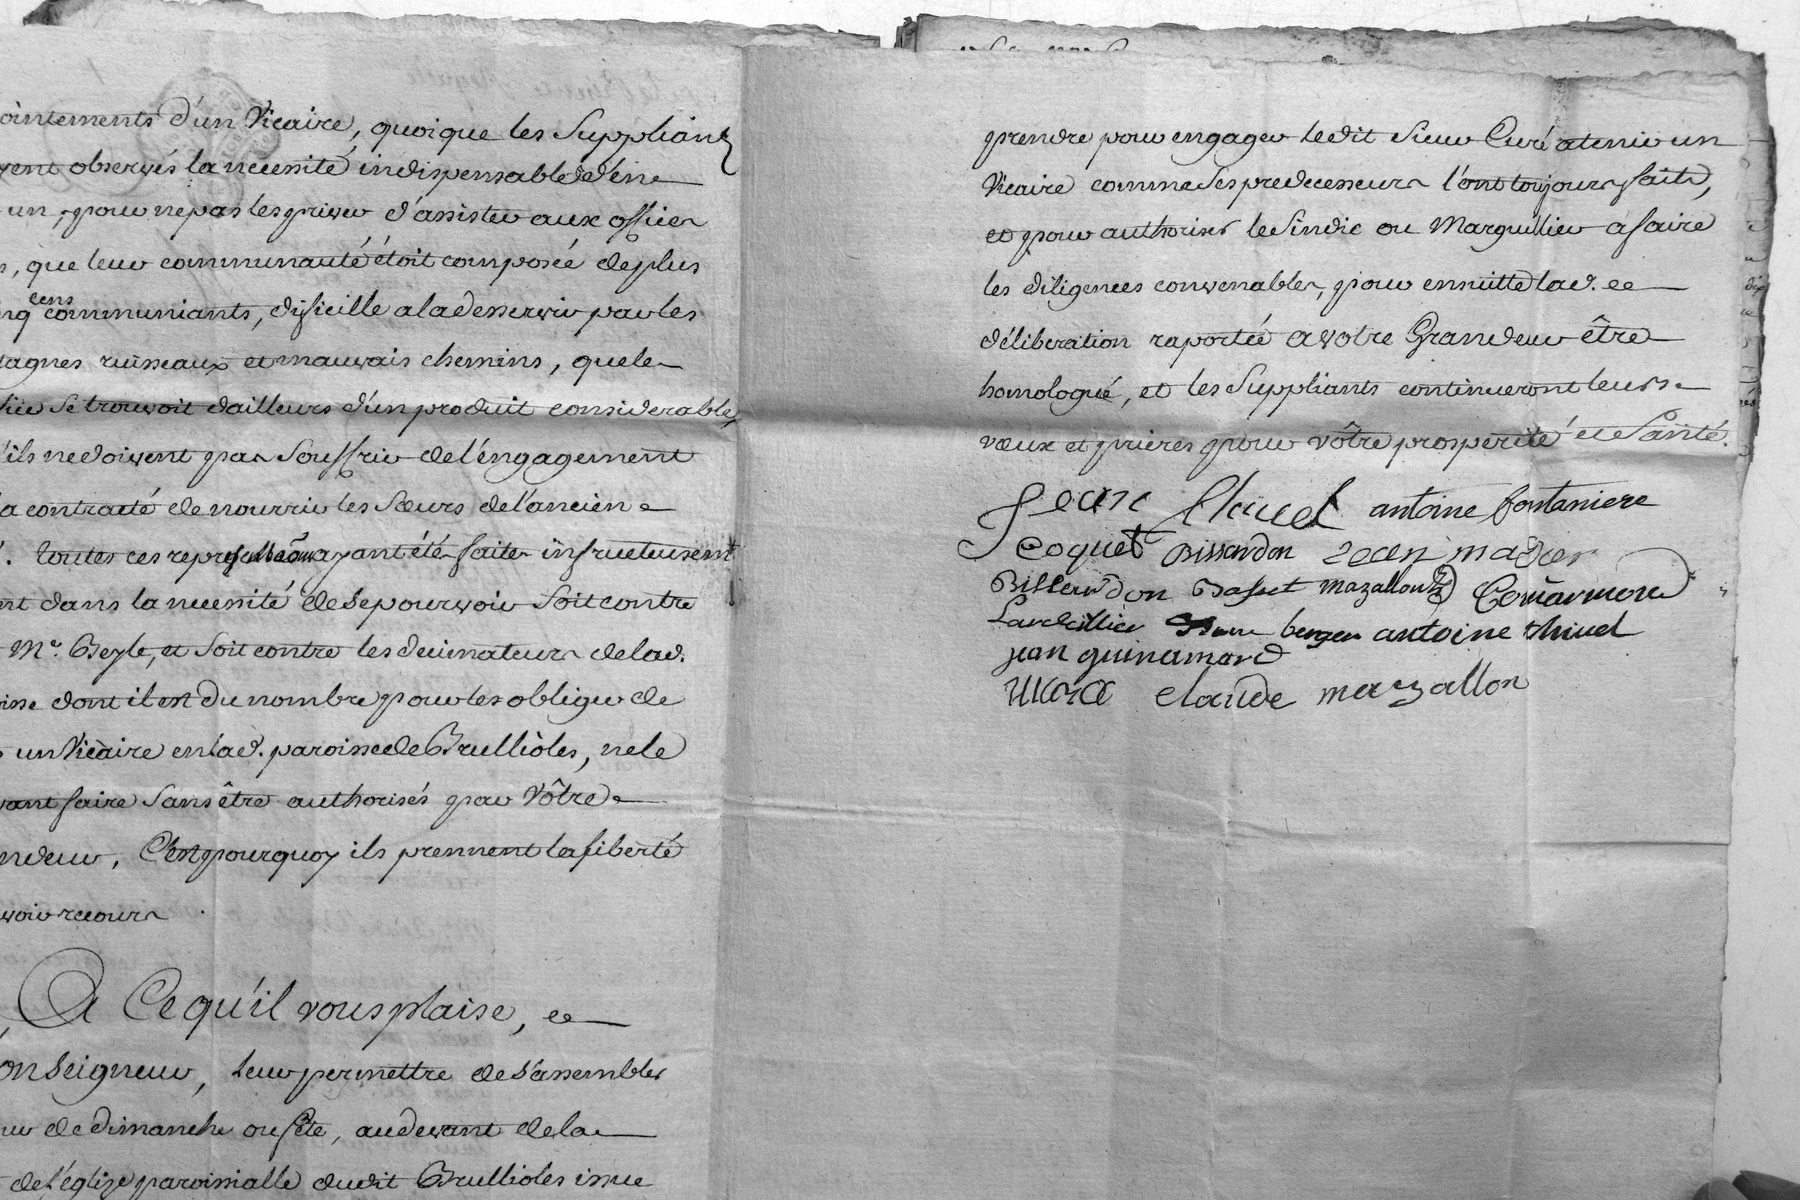 ointements d'un Vicaire, quoique les Supplians
observés la necessité indispensable d'en
un, pour ne pas les priver d'assister aux offices
, que leur communauté étoit composée de plus
cens
communiants, dificille a la desservir par les
tagnes ruisseaux et mauvais chemins, que le
se trouvoit dailleurs d'un produit considerable,
'ils ne doivent pas souffrir de l'éngagement
a contracté de nourrir les Sœurs de l'ancien
. toutes ces ayant été faites infructueusemt
nt dans la necessité de se pourvoir soit contre
Mr. Beyle, et soit contre les decimateurs de lad.
oisse dont il est du nombre pour les obliger de
un Vicaire en lad. paroisse de Brullioles, ne le
vant faire sans être authorisés par Vôtre
ndeur, C'est pourquoy ils prennent la liberté
voir recours
A Ce qu'il vous plaise,
onseigneur, leur permettre de s'assembler
our de dimanche ou féte, au devant de la
de l'église paroissialle dudit Brullioles issue
prendre pour engager ledit Sieur Curé a tenir un
Vicaire comme ses predecesseurs l'ont toujours fait,
et pour authoriser le Sindic ou Marguillier à faire
les diligences convenables, pour ensuitte lad.
déliberation raportée a votre Grandeur être
homologué, et les Suppliants continueront leurs
vœux et prieres pour vôtre prosperité et Santé.
Jean Claude antoine fontaniere
Coquet Bissardon Jean
Bissardon Basset mazallon
berger antoine thivel
jean guinamard
claude mazallon